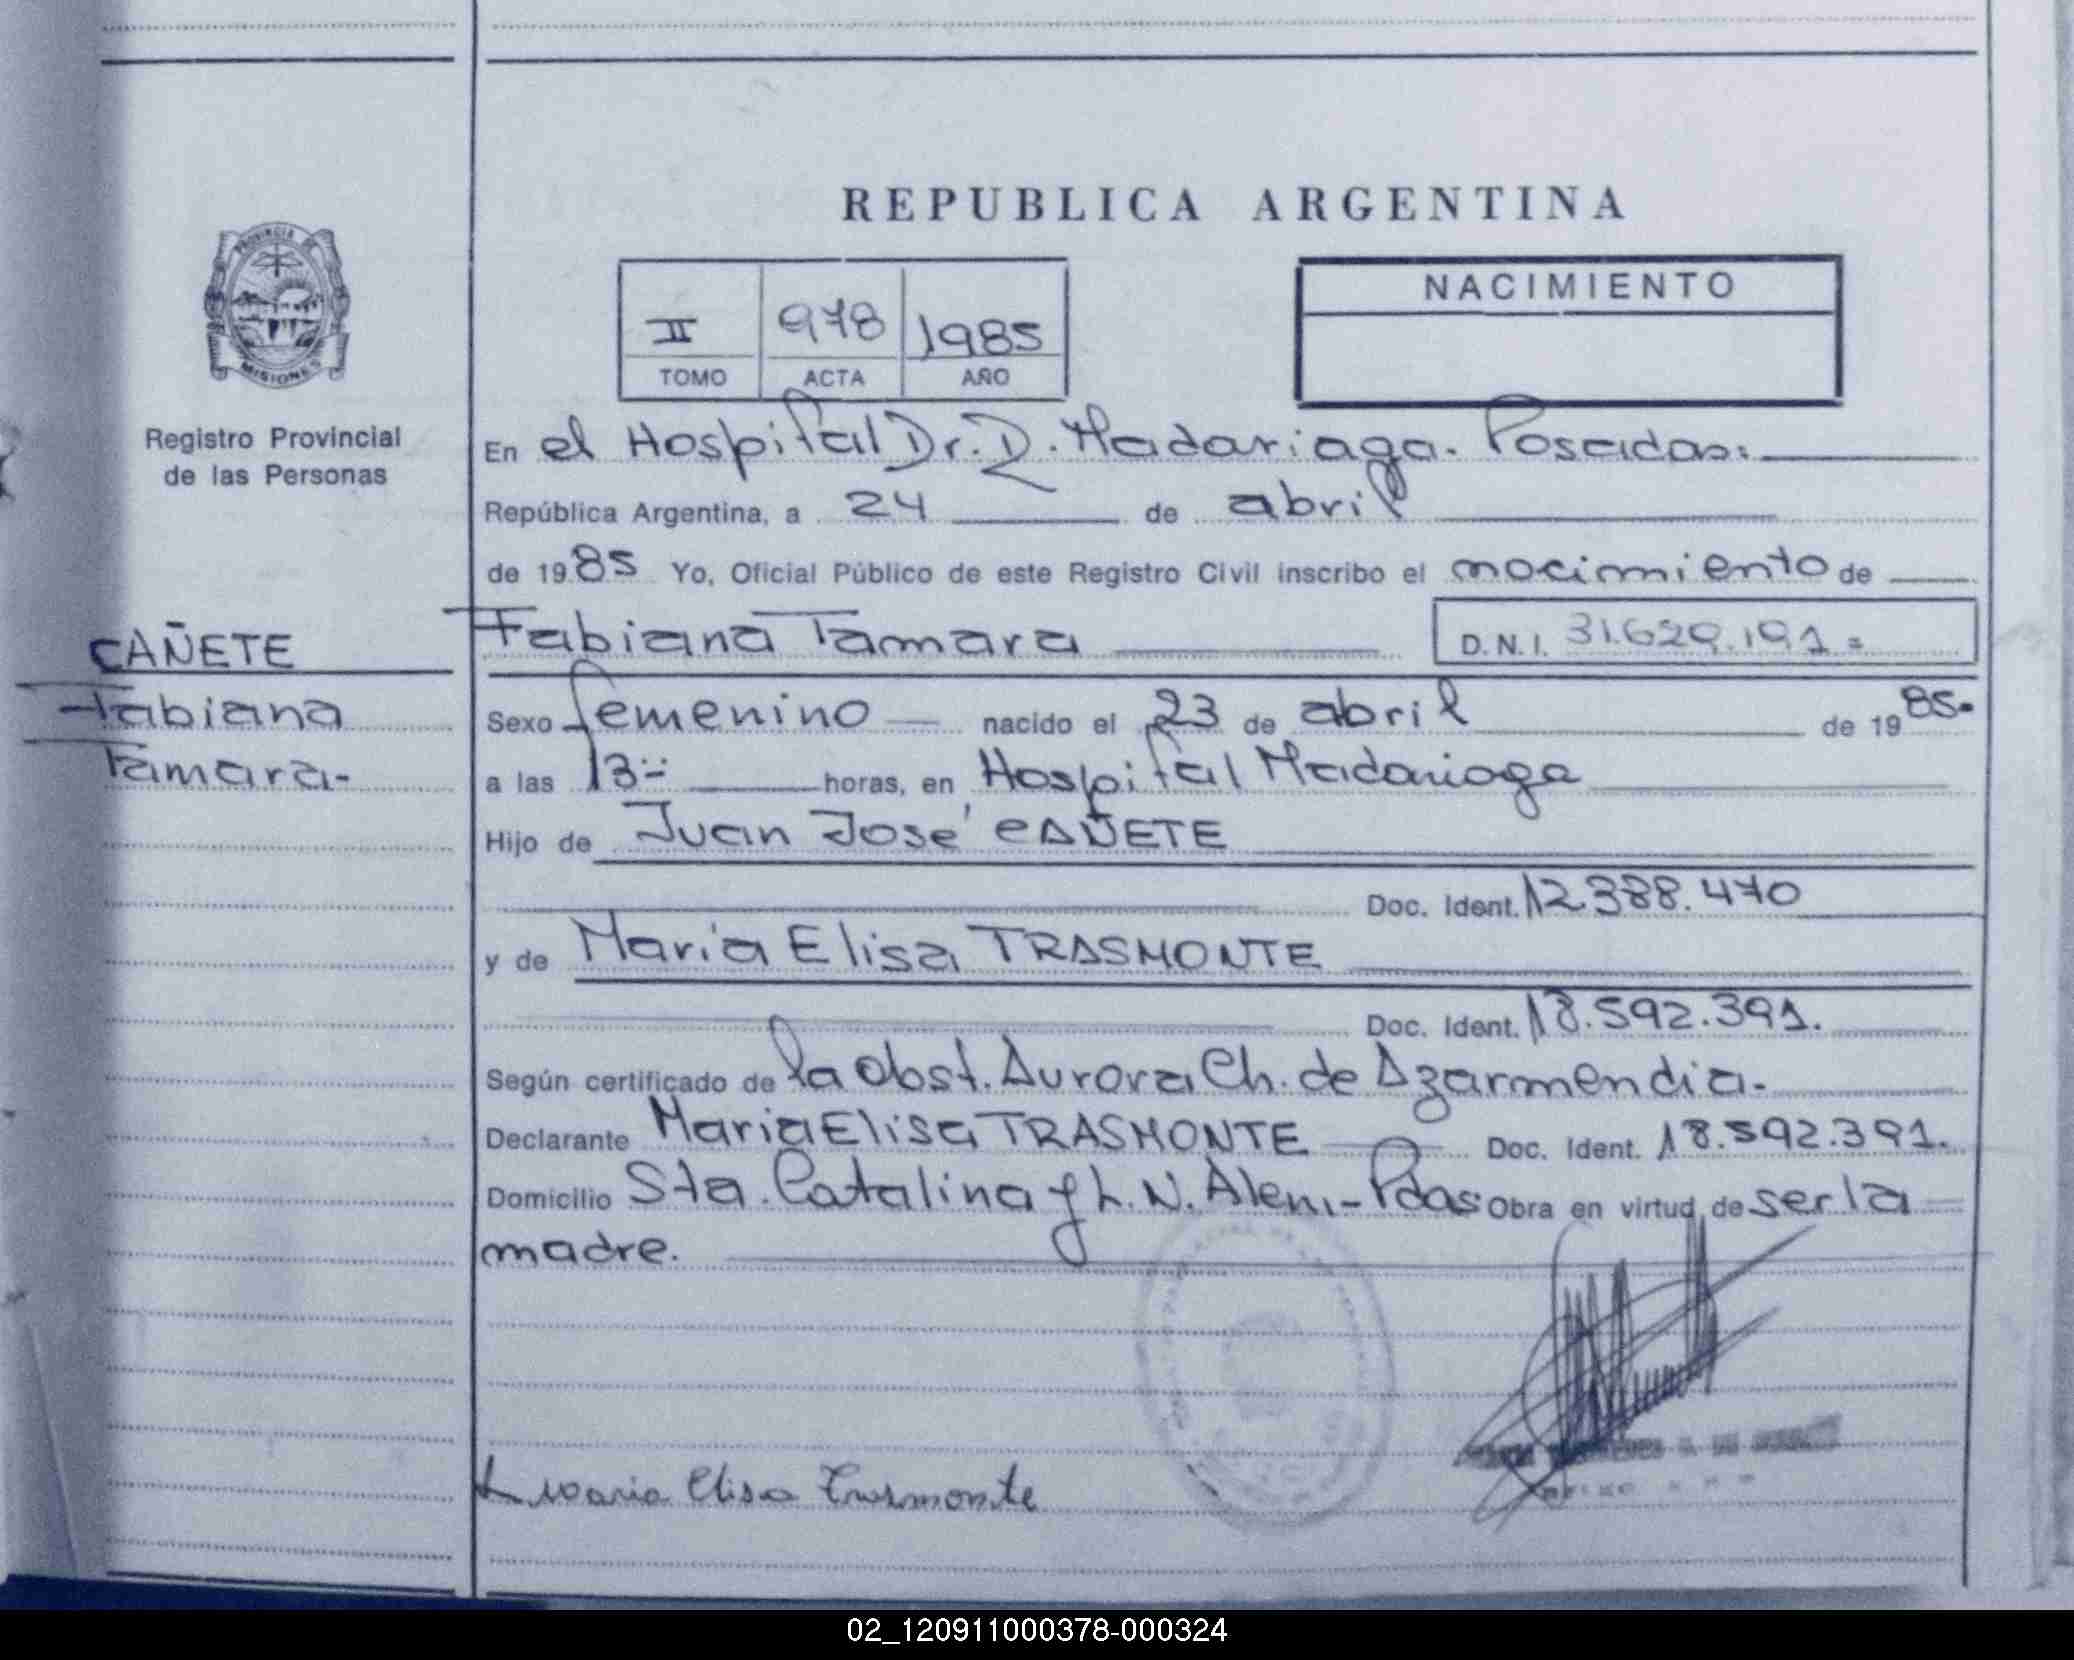 REPUBLICA ARGENTINA
PROVINCIA DE
MISIONES
Registro Provincial
de las Personas
II 978 1985
TOMO ACTA AÑO
NACIMIENTO
En el Hospital Dr. R. Madariaga. Posadas.
República Argentina, a 24 de abril
de 1985 Yo, Oficial Público de este Registro Civil inscribo el nacimiento de
Fabiana Tamara D.N.I. 31.629.191=
CAÑETE
Fabiana
Tamara-
Sexo femenino nacido el 23 de abril de 1985-
a las 13- horas, en Hospital Madariaga
Hijo de Juan José CAÑETE
Doc. Ident. 12.388.470
y de Maria Elisa TRASMONTE
Doc. Ident. 18.592.391.
Según certificado de la Obst. Aurora Ch. de Azarmendia.
Declarante Maria Elisa TRASMONTE Doc. Ident. 18.592.391.
Domicilio Sta. Catalina y L. N. Alem - Pdas. Obra en virtud de ser la
madre.
Maria Elisa Trasmonte
02_120911000378-000324